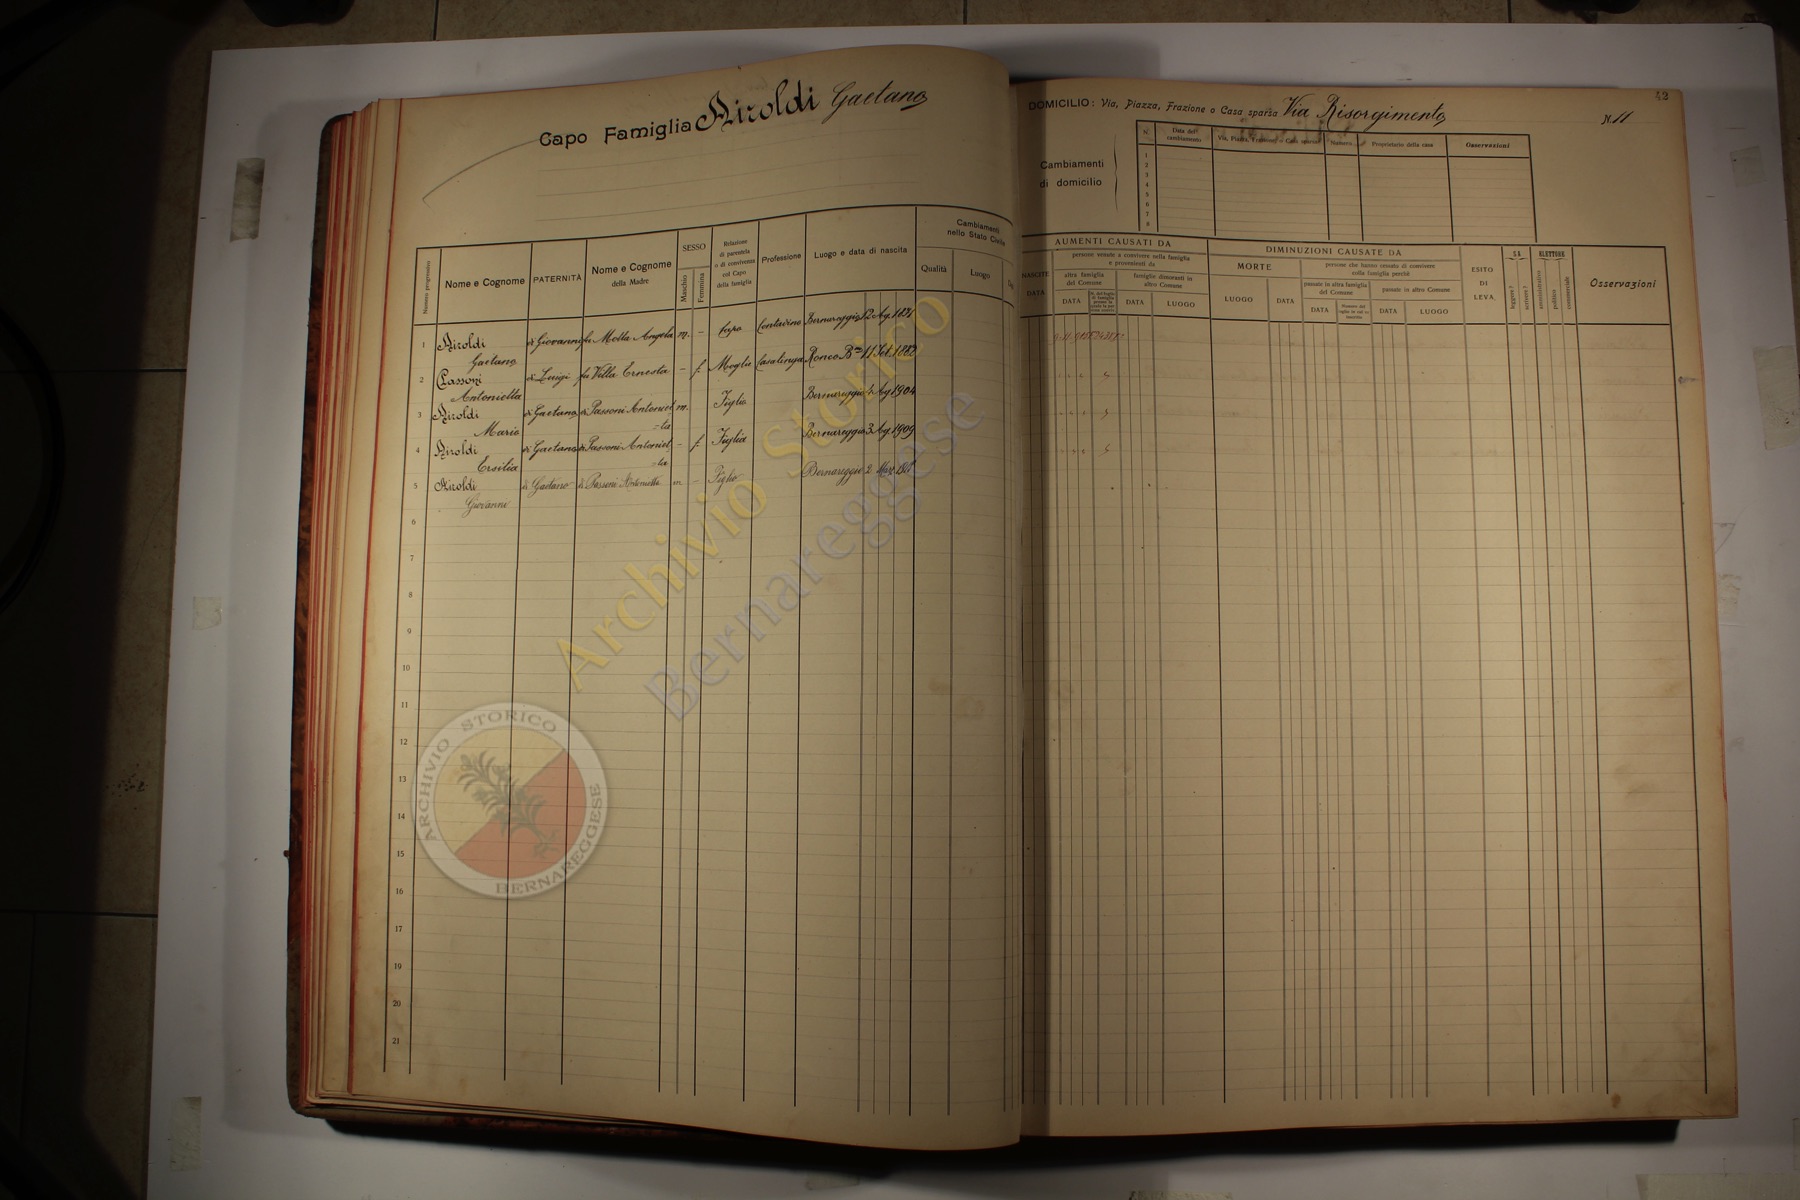 Capo Famiglia Airoldi Gaetano
42
DOMICILIO: Via, Piazza, Frazione o Casa sparsa Via Risorgimento N. 11
Cambiamenti di domicilio
N. Data del cambiamento Via, Piazza, Frazione o Casa sparsa Numero Proprietario della casa Osservazioni
1
2
3
4
5
6
7
8
Numero progressivo
Nome e Cognome
PATERNITÀ
Nome e Cognome della Madre
SESSO
Maschio
Femmina
Relazione di parentela o di convivenza col Capo della famiglia
Professione
Luogo e data di nascita
Cambiamenti nello Stato Civile
Qualità
Luogo
NASCITE
DATA
AUMENTI CAUSATI DA
persone venute a convivere nella famiglia e provenienti da
altra famiglia del Comune
famiglie dimoranti in altro Comune
DATA
DATA
LUOGO
DIMINUZIONI CAUSATE DA
MORTE
LUOGO
DATA
persone che hanno cessato di convivere nella famiglia perchè
passate in altra famiglia del Comune
passate in altro Comune
DATA
DATA
LUOGO
ESITO DI LEVA
SA
leggere?
scrivere?
ELETTORE
amministrativo
politico
commerciale
Osservazioni
1 Airoldi Gaetano di Giovanni fu Motta Angela m. - Capo Contadino Bernareggio 12 Ag. 1881
2 Passoni Antonietta di Luigi fu Villa Ernesta - f. Moglie Casalinga Ronco Bno 11 Feb. 1882
3 Airoldi Mario di Gaetano di Passoni Antonietta m. Figlio Bernareggio 4 Ag. 1904
4 Airoldi Ersilia di Gaetano di Passoni Antonietta - f. Figlia Bernareggio 3 Ag. 1909
5 Airoldi Giovanni di Gaetano di Passoni Antonietta m - Figlio Bernareggio 2 Mar.
6
7
8
9
10
11
12
13
14
15
16
17
18
19
20
21
Archivio Storico
Bernareggese
ARCHIVIO STORICO
BERNAREGGESE